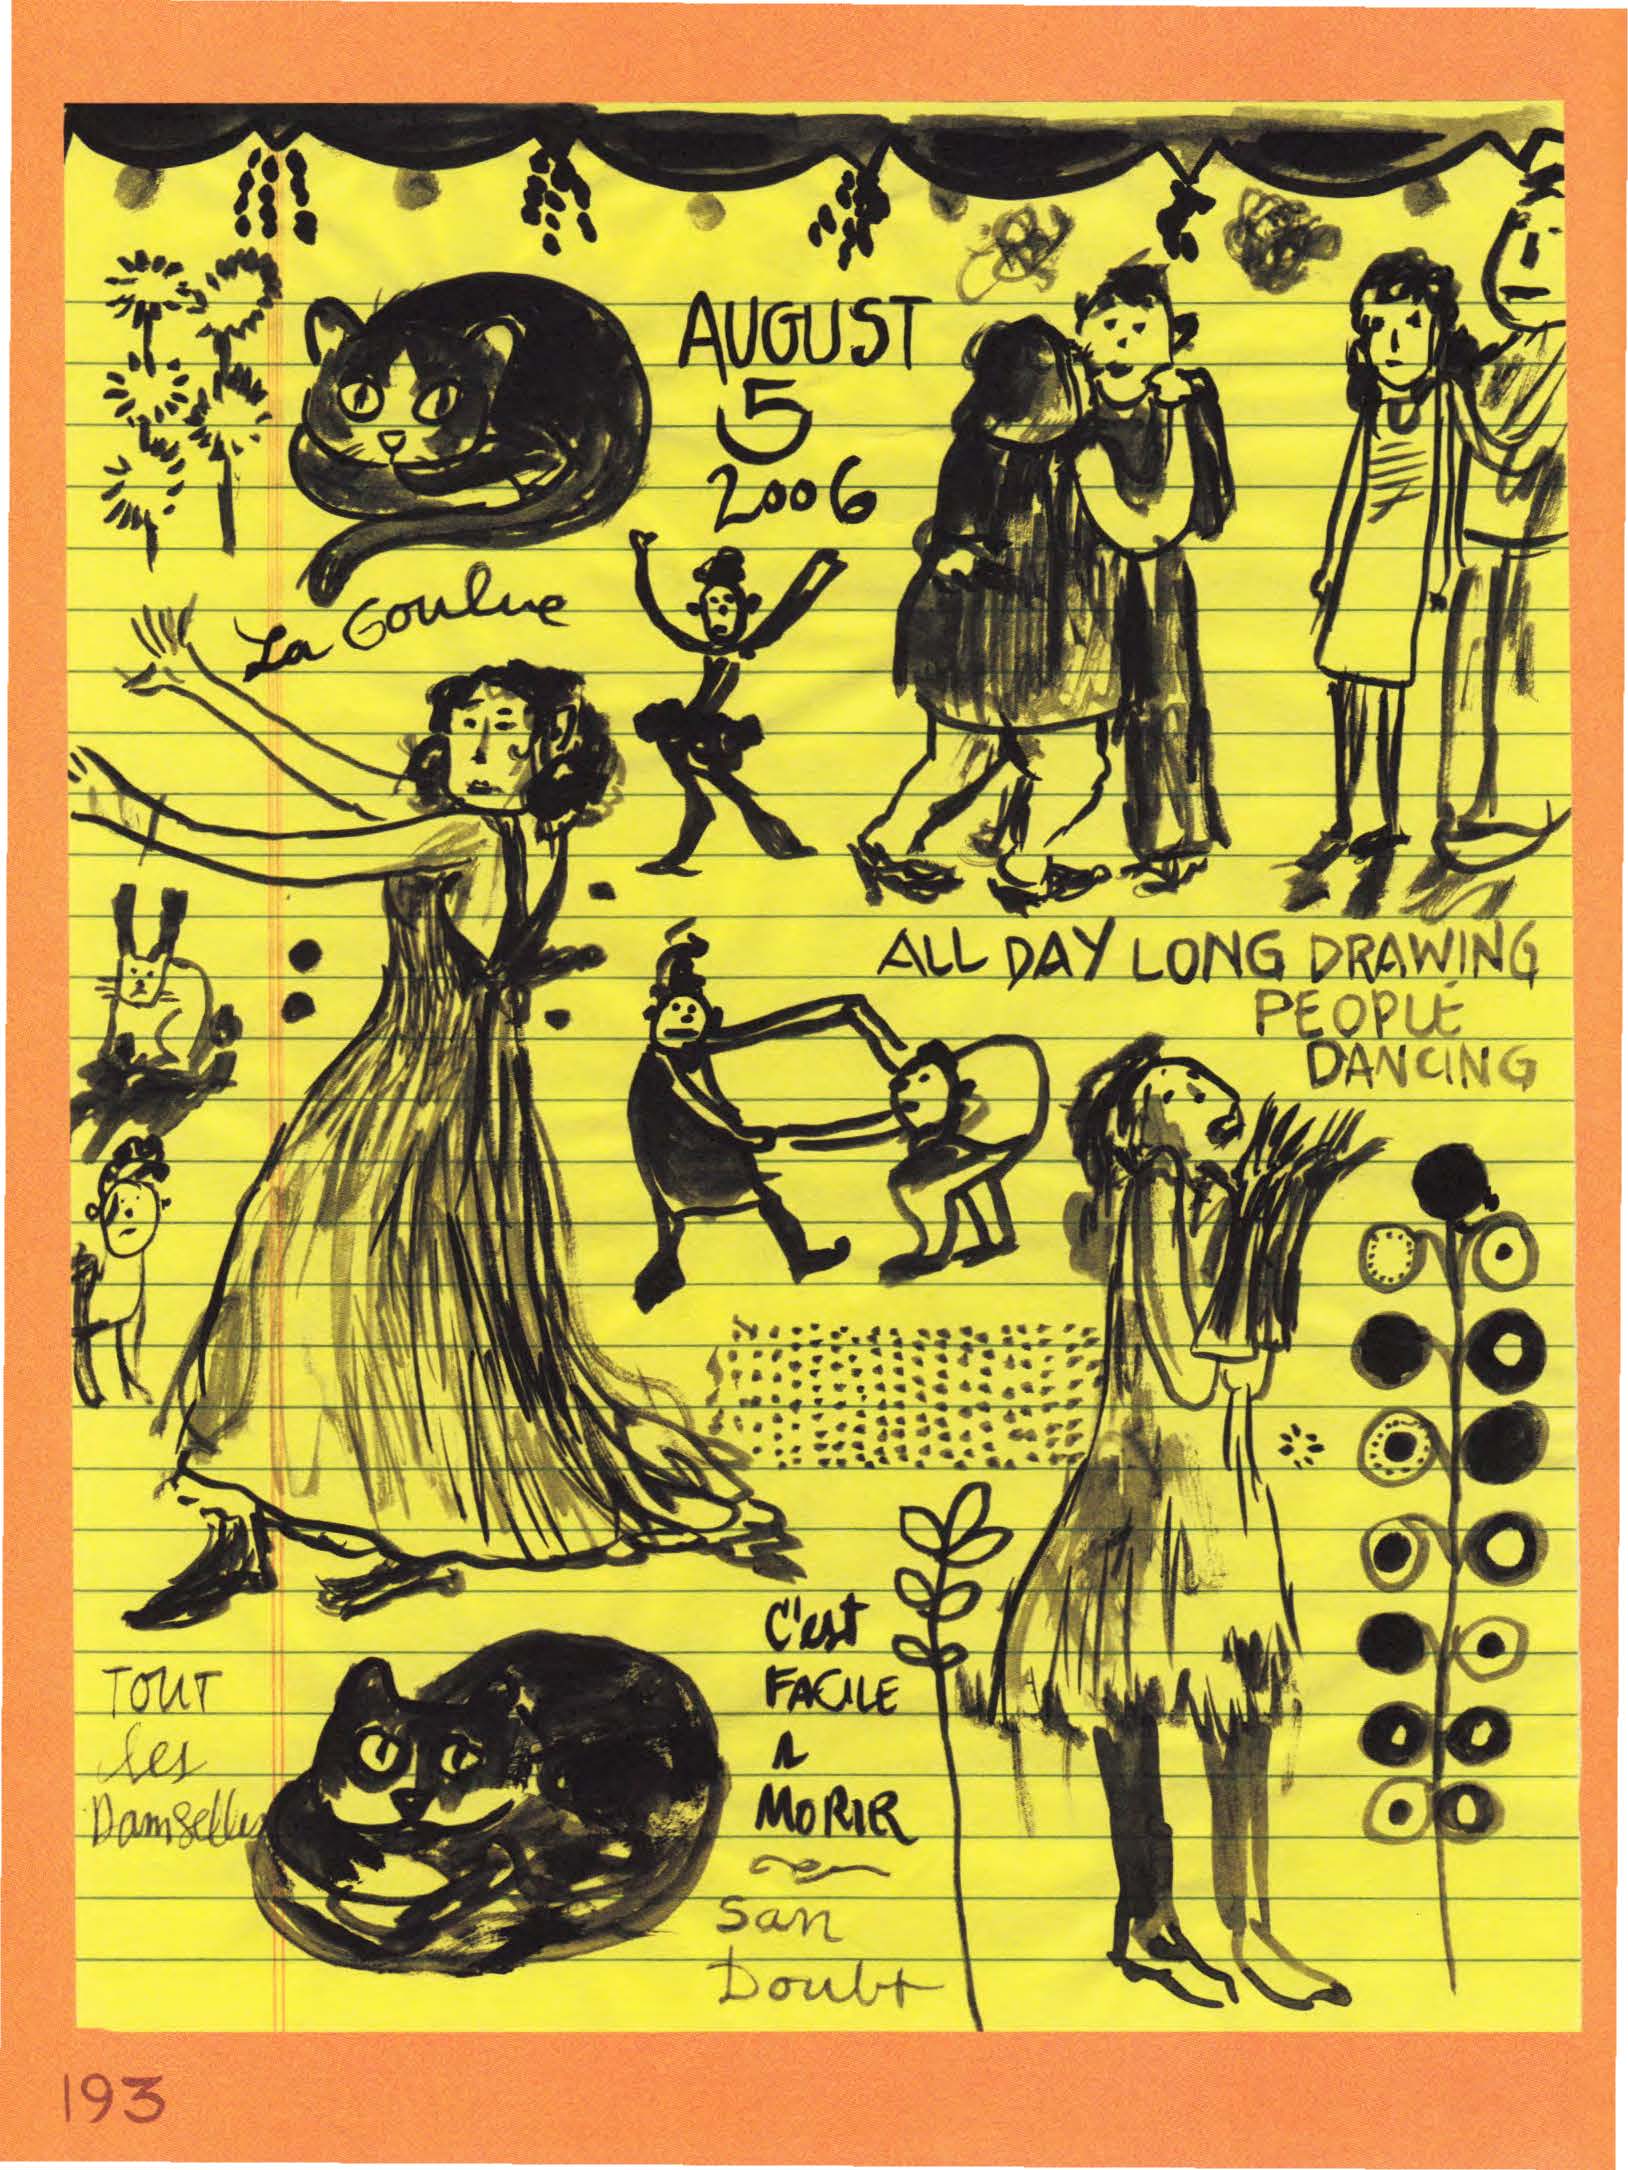 AUGUST
5
2006
La Goulue
ALL DAY LONG DRAWING
PEOPLE
DANCING
TOUT
les
Damselles
C'est
FACILE
A
MORIR
San
Doubt
193